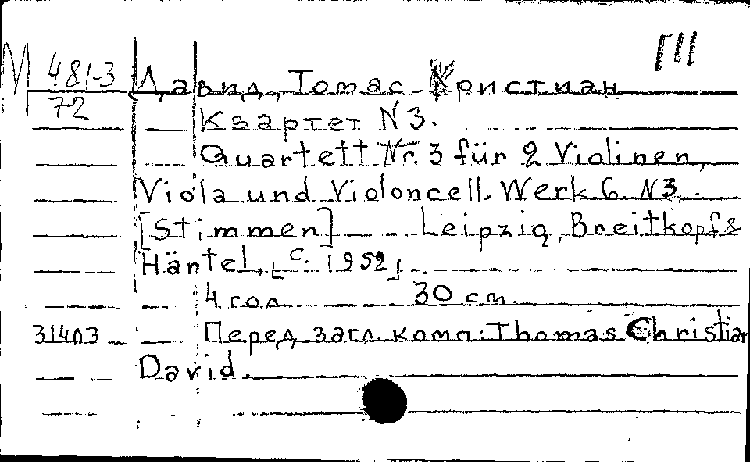 ГІІІ
М 481-3
72
Давид, Томас Кристиан
Квартет N 3.
Quartett Nr. 3 für 2 Violinen,
Viola und Violoncell. Werk 6 N3.
[Stimmen] Leipzig, Breitkopf &
Härtel, [c. 1952]
4 гол 30 cm
31403 Перед загл. комп.: Thomas Christian
David.